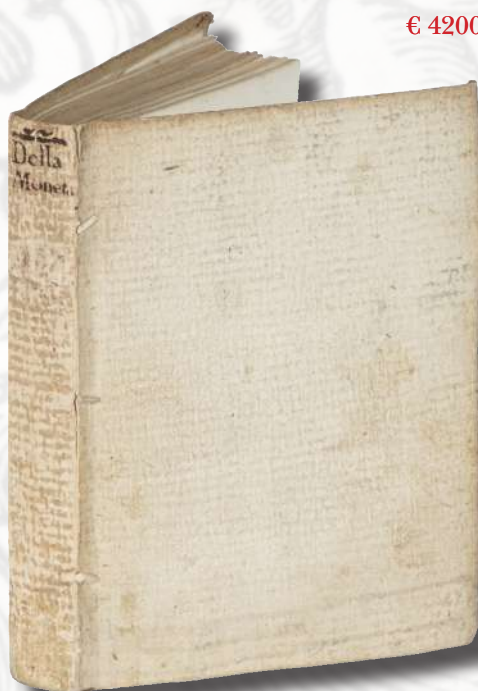 € 4200
Della
Moneta